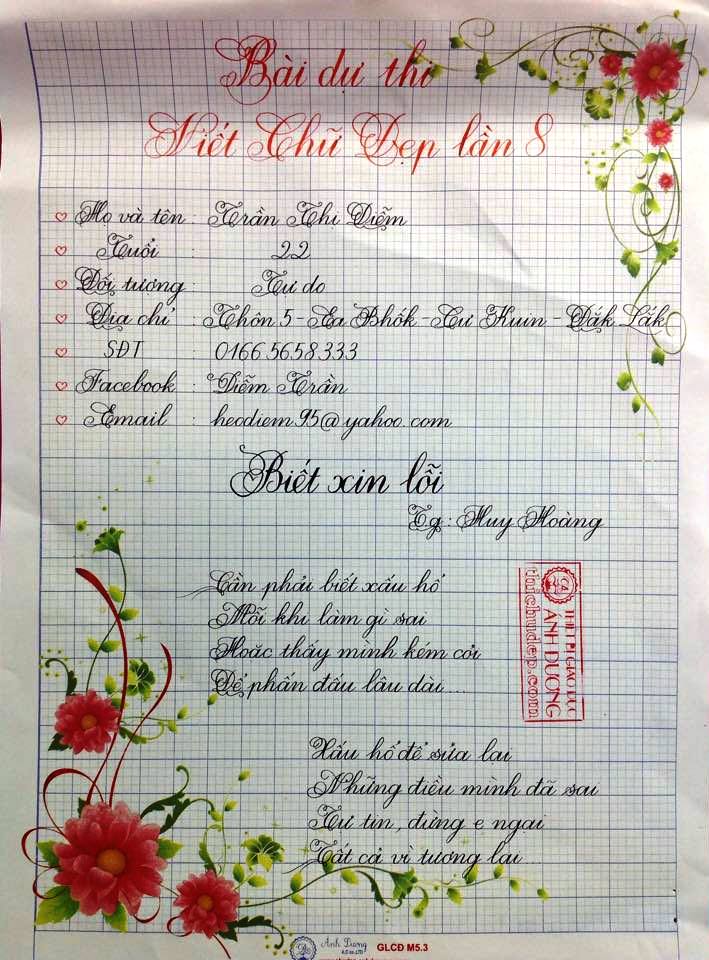 Bài dự thi
Viết Chữ Đẹp lần 8
Họ và tên : Trần Thi Diễm
Tuổi : 22
Đối tượng : Tự do
Địa chỉ : Thôn 5 - Ea Bhốk - Cư Kuin - Đắk Lắk
SĐT : 0166.5658.333
Facebook : Diễm Trần
Email : heodiem95@yahoo.com
Biết xin lỗi
Tg : Huy Hoàng
Cần phải biết xấu hổ
Mỗi khi làm gì sai
Hoặc thấy mình kém cỏi
Để phấn đấu lâu dài...
Xấu hổ để sửa lại
Những điều mình đã sai
Tự tin, đừng e ngại
Tất cả vì tương lai...
ÁNH DƯƠNG
Ánh Dương
GLCĐ M5.3